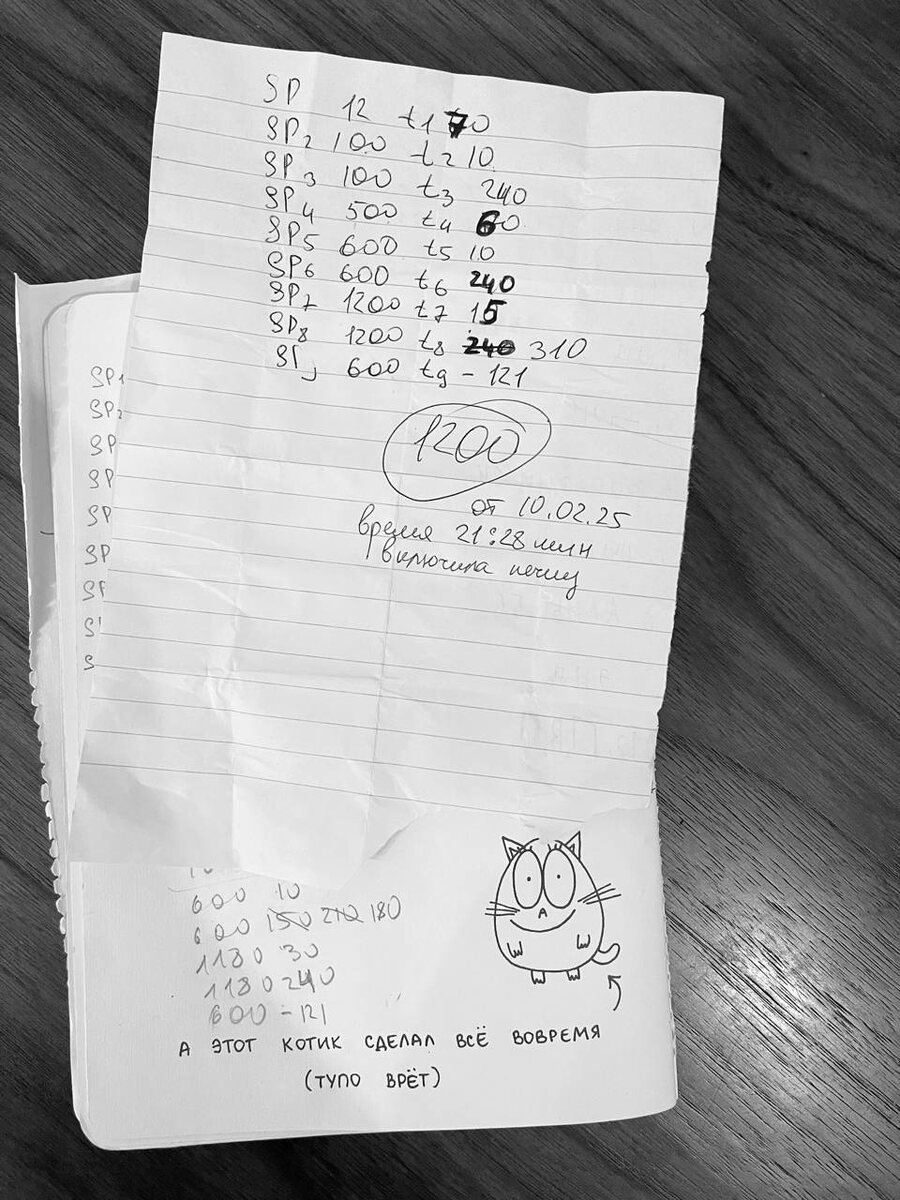 SP 12 t1 70
SP2 100 t2 10
SP3 100 t3 240
SP4 500 t4 60
SP5 600 t5 10
SP6 600 t6 240
SP7 1200 t7 15
SP8 1200 t8 240 310
600 t9 - 121
1200
от 10.02.25
время 21:28 мин
включила печку
SP1
SP2
SP
SP
SP
SP
SP
S
600 10
600 150 210 180
1180 30
1180 240
600 - 121
А ЭТОТ КОТИК СДЕЛАЛ ВСЁ ВОВРЕМЯ
(ТУПО ВРЁТ)